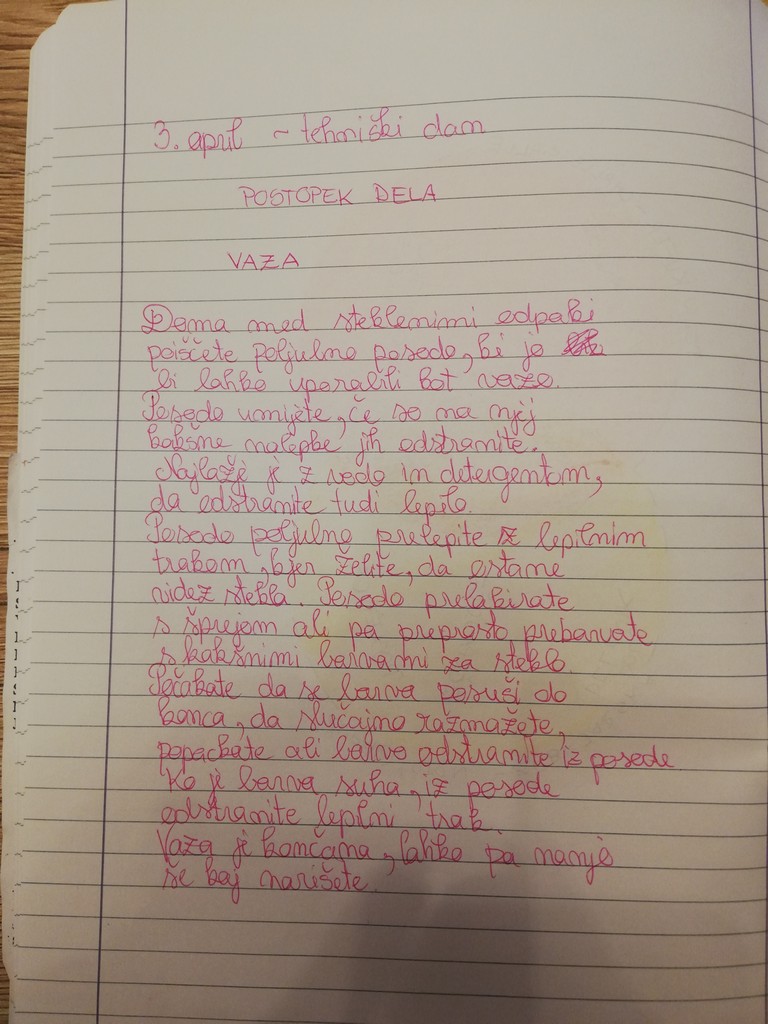 3. april - tehniški dan
POSTOPEK DELA
VAZA
Doma med steklenimi odpaki
poiščete poljubno posodo, ki jo
bi lahko uporabili kot vazo.
Posodo umijete, če so na njej
kakšne nalepke jih odstranite.
Najlažje je z vodo in detergentom,
da odstranite tudi lepilo.
Posodo poljubno prelepite z lepilnim
trakom, kjer želite, da ostane
videz stekla. Posodo prelakirate
s šprejem ali pa preprosto prebarvate
s kakšnimi barvami za steklo.
Počakate da se barva posuši do
konca, da slučajno razmažete,
popackate ali barvo odstranite iz posode
Ko je barva suha, iz posode
odstranite lepilni trak.
Vaza je končana, lahko pa nanjo
še kaj narišete.